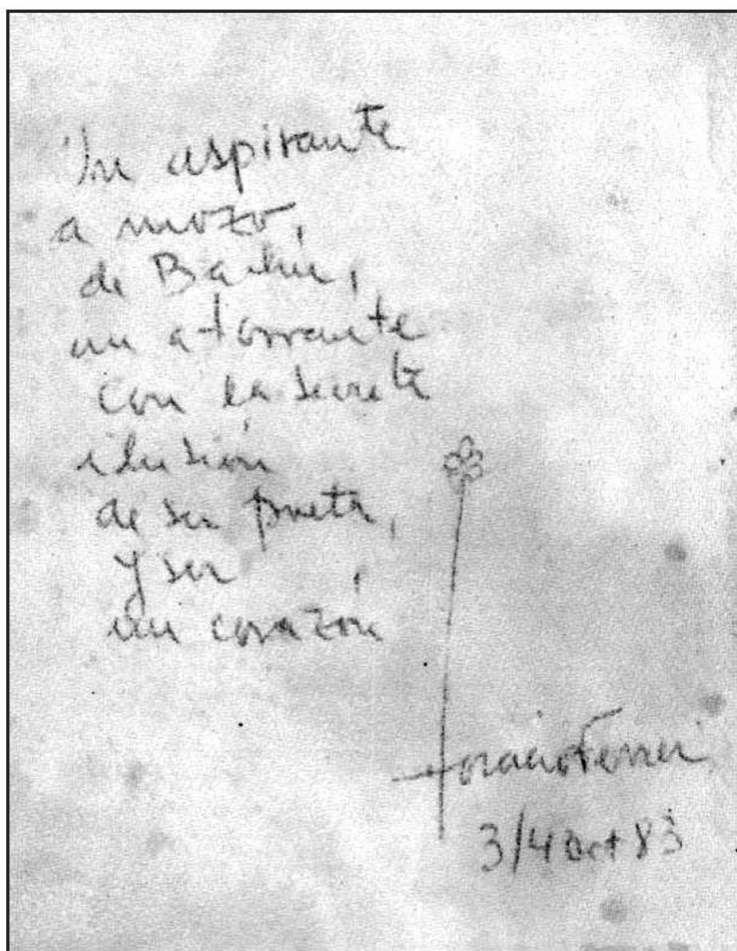 Un aspirante
a mozo,
de Bachín,
un atorrante
con la secreta
ilusión
de ser poeta,
y ser
un corazón
Horacio Ferrer
3/4 Oct 83